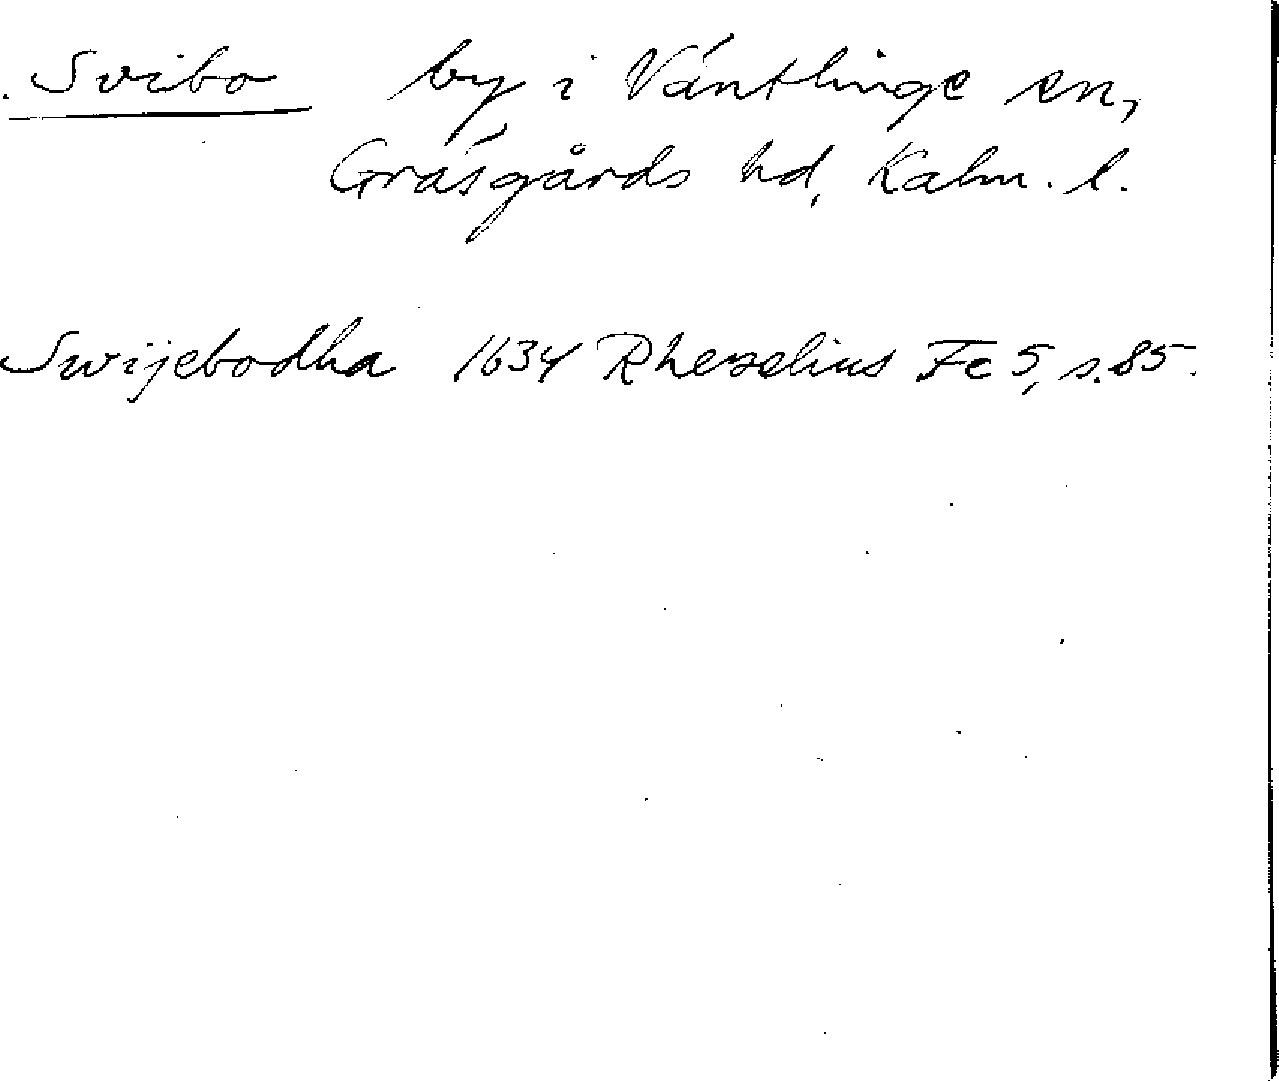 Svibo by i Väntlinge sn,
Gräsgårds hd, Kalm. l.
Swijebodha 1634 Rhezelius Fc 5, s. 85.